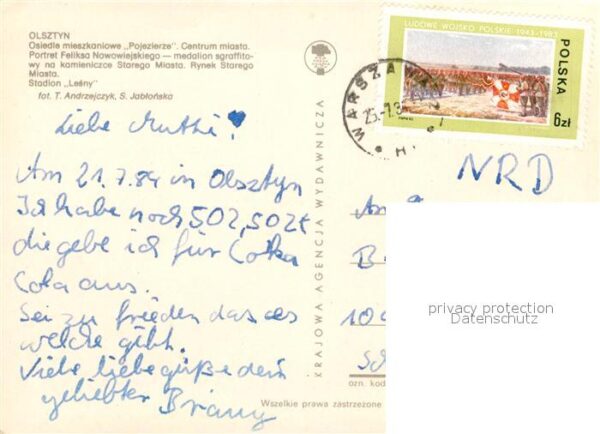 OLSZTYN
Osiedle mieszkaniowe „Pojezierze". Centrum miasta.
Portret Feliksa Nowowiejskiego — medalion sgraffito-
wy na kamieniczce Starego Miasta. Rynek Starego
Miasta.
Stadion „Leśny"
fot. T. Andrzejczyk, S. Jabłońska
Liebe Mutti!
Am 21.7.84 in Olsztyn
Ich habe noch 502,50 Zł
die gebe ich für
Cola aus.
Sei zu frieden das es
welche gibt.
Viele liebe grüße dein
geliebter
KRAJOWA AGENCJA WYDAWNICZA
LUDOWE WOJSKO POLSKIE 1943-1983
POLSKA
6zł
WARSZA
NRD
B
10
ozn. kod
Wszelkie prawa zastrzeżone
privacy protection
Datenschutz